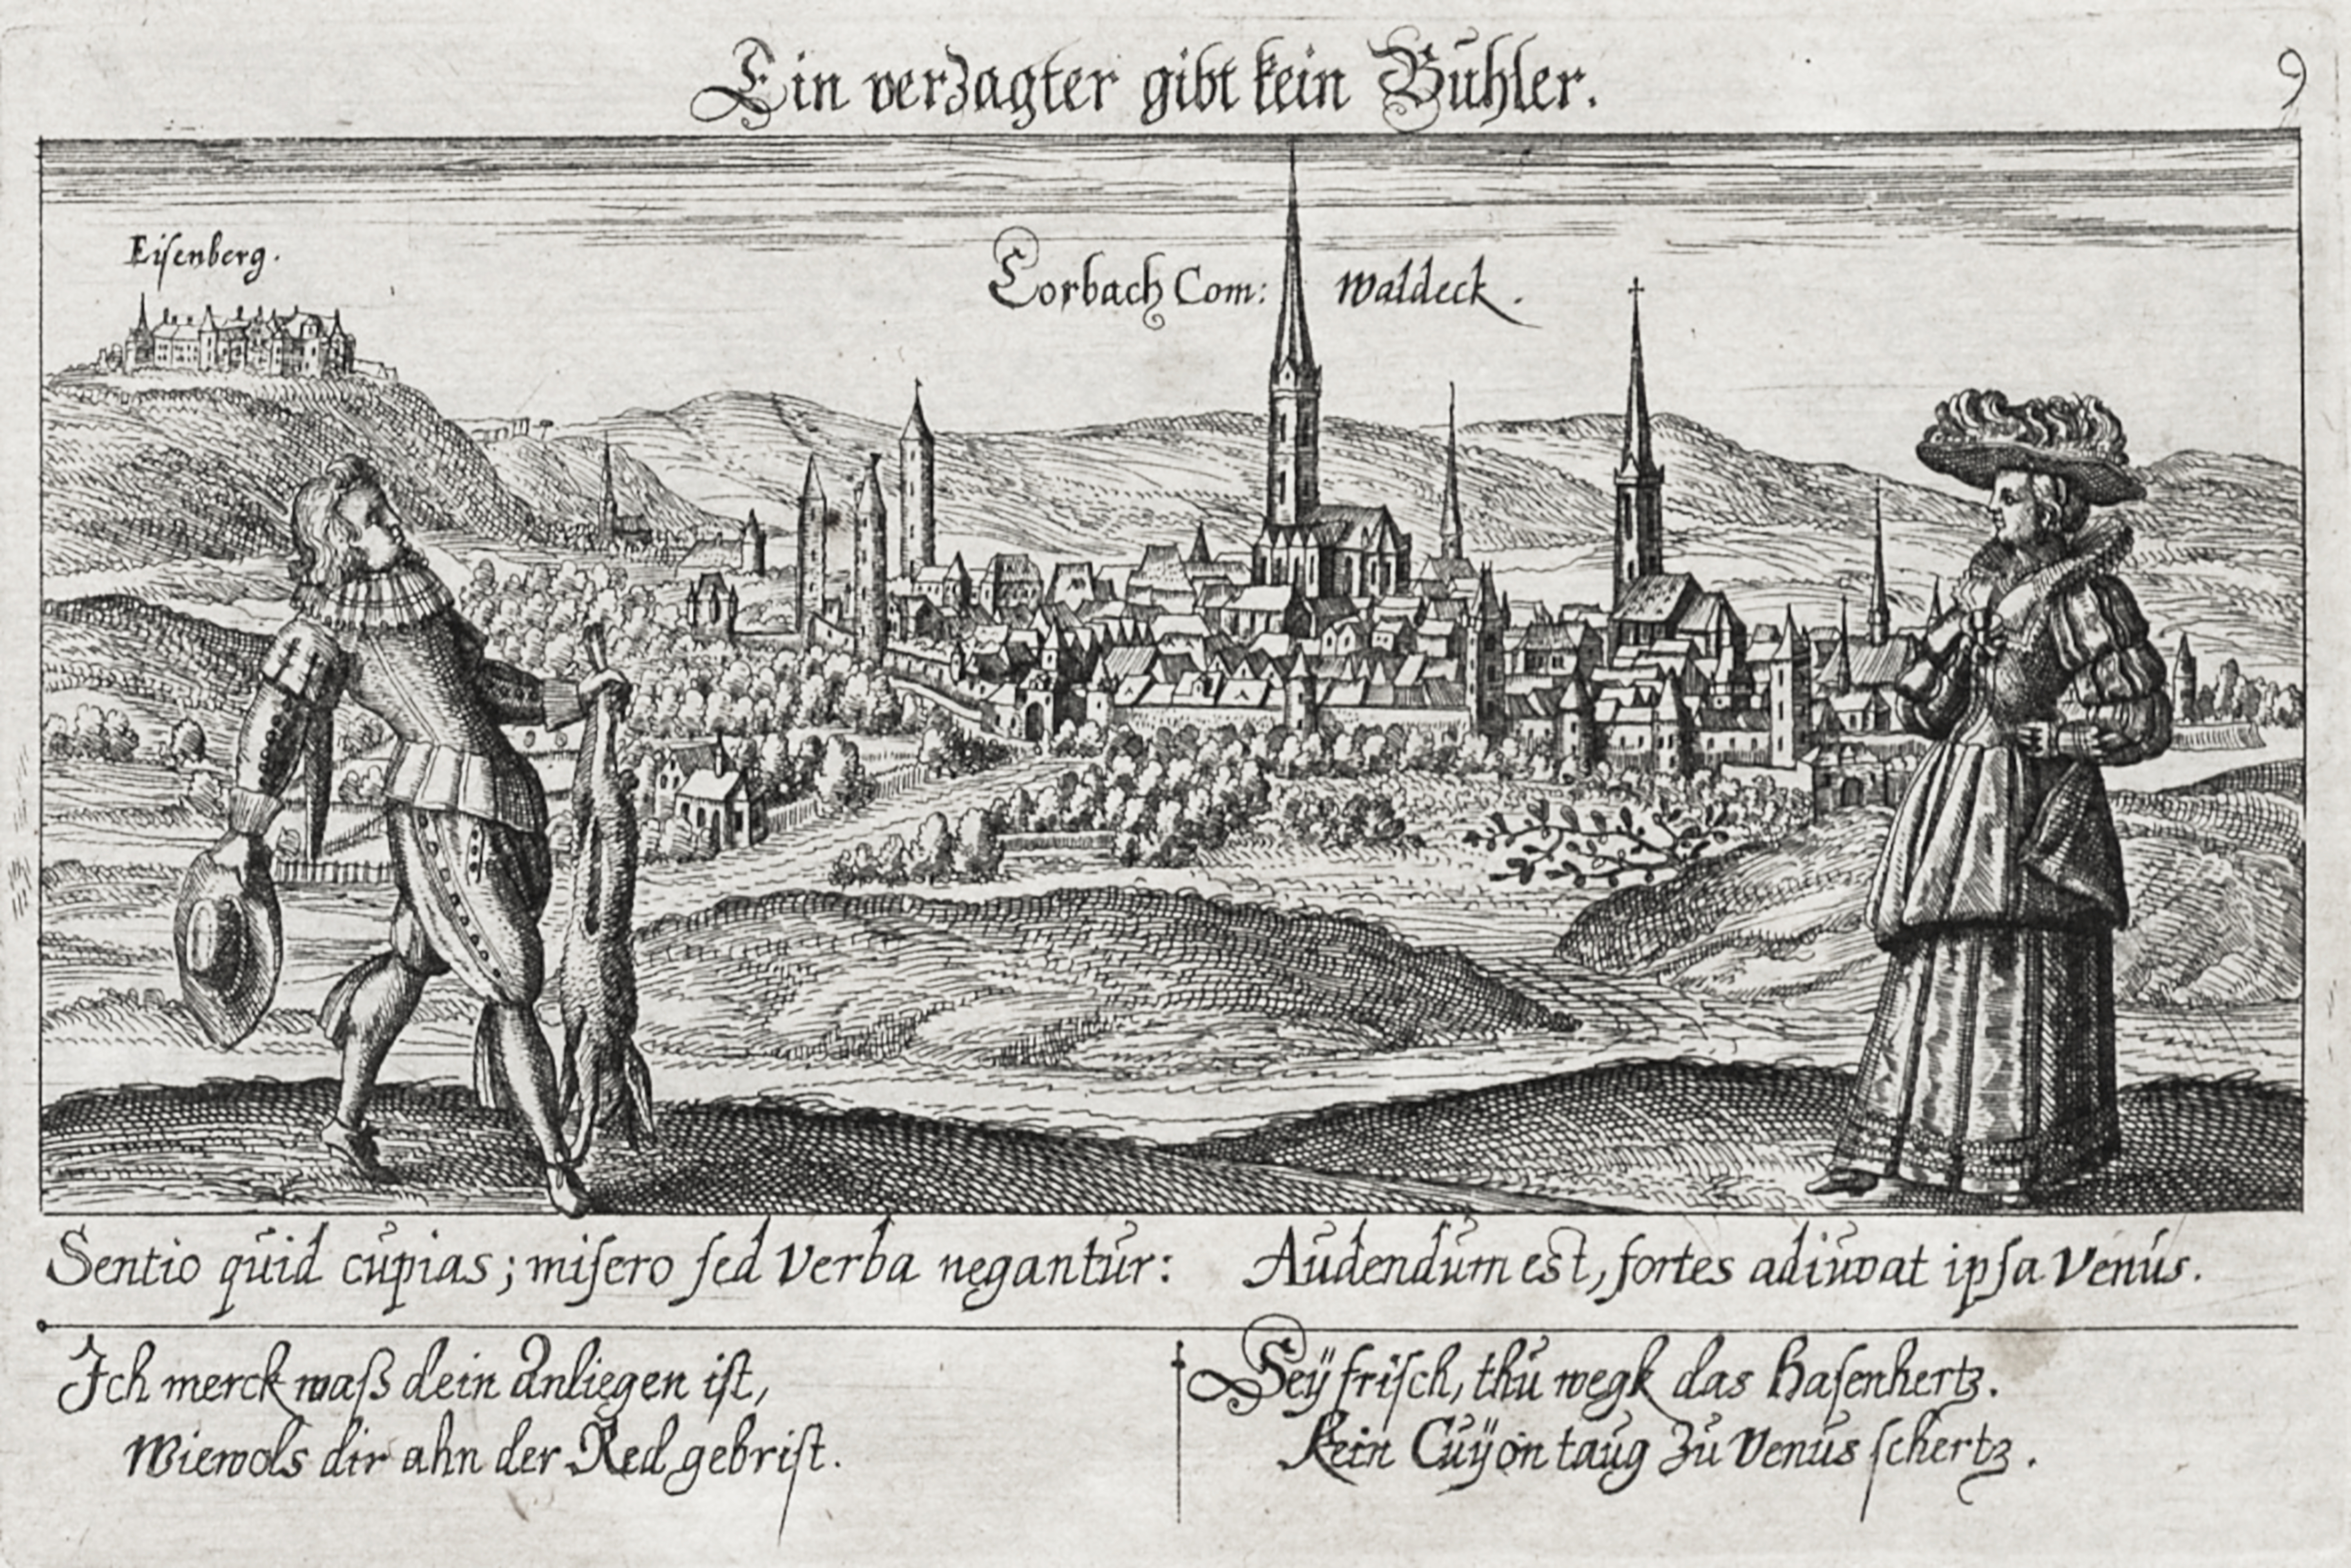 Ein verzagter gibt kein Buhler.
9
Eiſenberg.
Corbach Com: Waldeck.
Sentio quid cupias; miſero ſed Verba negantur: Audendum est, fortes adiuvat ipſa Venus.
Ich merck waß dein Anliegen iſt,
Wiewols dir ahn der Red gebriſt.
Seÿ friſch, thu wegk das Haſenhertz.
Kein Cuÿon taug zu Venus ſchertz.